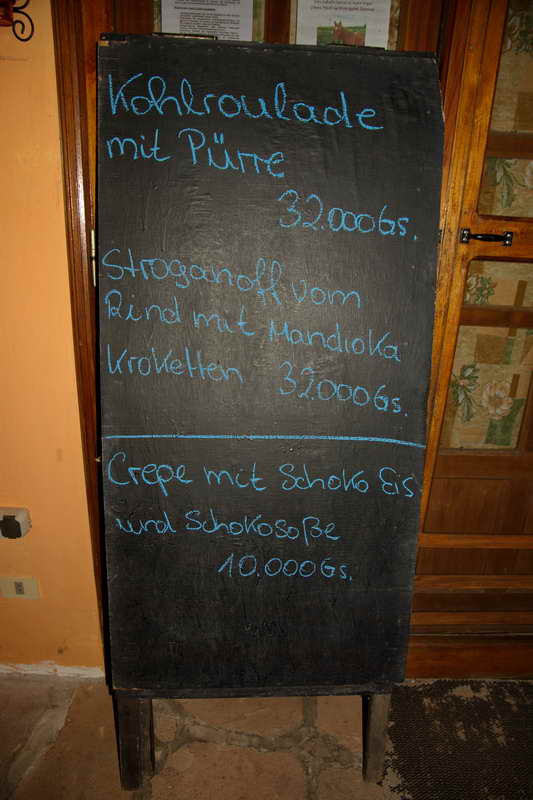 Kohlroulade
mit Pürre
32.000Gs.
Stroganoff vom
Rind mit Mandioka
Kroketten 32.000Gs.
Crepe mit Schoko Eis
und Schokosoße
10.000Gs.